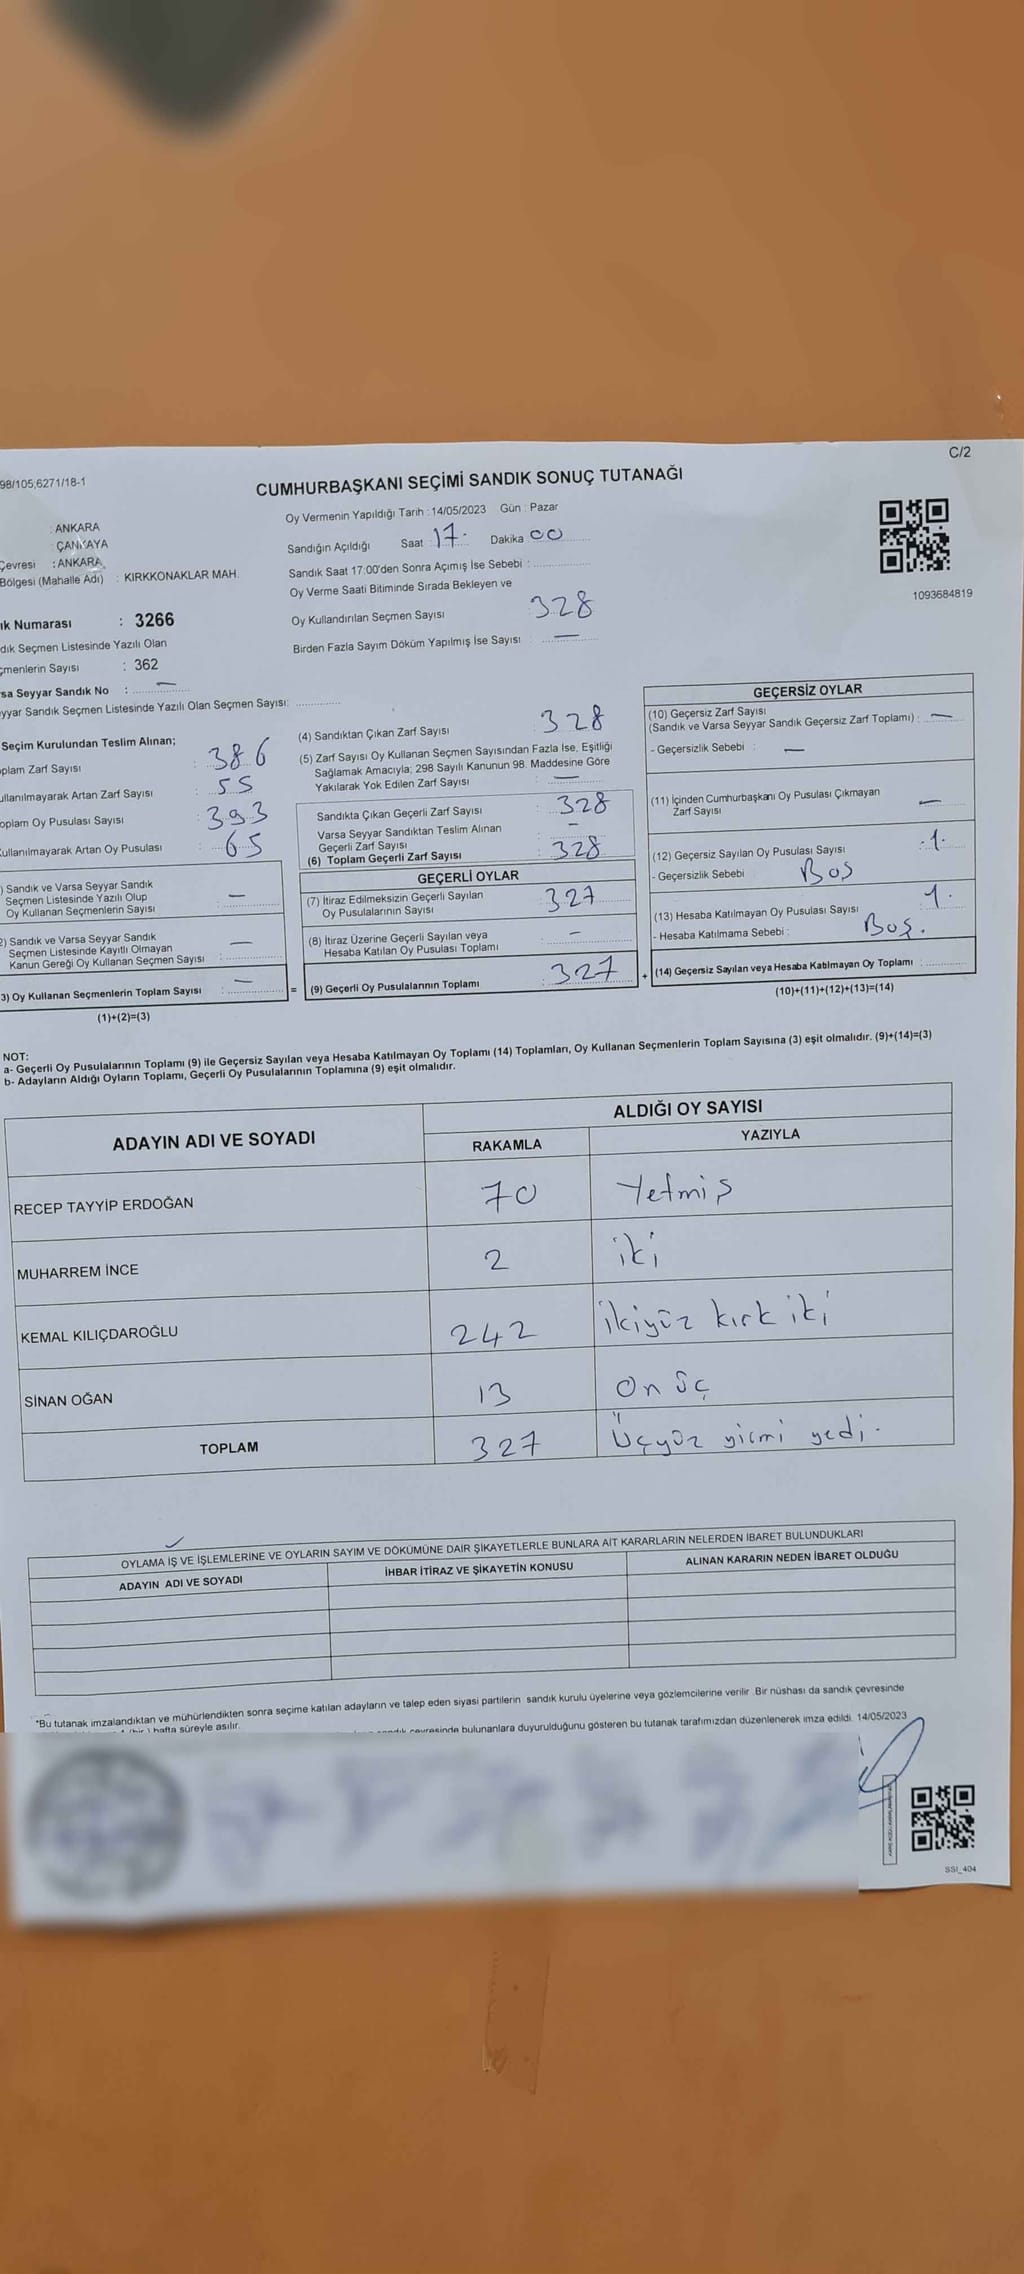 C/2
98/105,6271/18-1
CUMHURBAŞKANI SEÇİMİ SANDIK SONUÇ TUTANAĞI
: ANKARA
: ÇANKAYA
Çevresi : ANKARA
Bölgesi (Mahalle Adı) : KIRKKONAKLAR MAH.
Numarası : 3266
Seçmen Listesinde Yazılı Olan
Sayısı : 362
Seyyar Sandık No : —
Sandık Seçmen Listesinde Yazılı Olan Seçmen Sayısı:
Oy Vermenin Yapıldığı Tarih : 14/05/2023 Gün : Pazar
Sandığın Açıldığı Saat : 17. Dakika 00
Sandık Saat 17:00'den Sonra Açımış İse Sebebi :
Oy Verme Saati Bitiminde Sırada Bekleyen ve
Oy Kullandırılan Seçmen Sayısı 328
Birden Fazla Sayım Döküm Yapılmış İse Sayısı : —
1093684819
Seçim Kurulundan Teslim Alınan;
Zarf Sayısı : 386
Artan Zarf Sayısı : 55
Oy Pusulası Sayısı : 393
Artan Oy Pusulası : 65
) Sandık ve Varsa Seyyar Sandık
Seçmen Listesinde Yazılı Olup
Oy Kullanan Seçmenlerin Sayısı : —
2) Sandık ve Varsa Seyyar Sandık
Seçmen Listesinde Kayıtlı Olmayan
Kanun Gereği Oy Kullanan Seçmen Sayısı : —
3) Oy Kullanan Seçmenlerin Toplam Sayısı : —
(1)+(2)=(3)
(4) Sandıktan Çıkan Zarf Sayısı 328
(5) Zarf Sayısı Oy Kullanan Seçmen Sayısından Fazla İse, Eşitliği
Sağlamak Amacıyla; 298 Sayılı Kanunun 98. Maddesine Göre
Yakılarak Yok Edilen Zarf Sayısı : —
Sandıkta Çıkan Geçerli Zarf Sayısı : 328
Varsa Seyyar Sandıktan Teslim Alınan
Geçerli Zarf Sayısı : —
(6) Toplam Geçerli Zarf Sayısı : 328
GEÇERLİ OYLAR
(7) İtiraz Edilmeksizin Geçerli Sayılan
Oy Pusulalarının Sayısı : 327
(8) İtiraz Üzerine Geçerli Sayılan veya
Hesaba Katılan Oy Pusulası Toplamı : —
= (9) Geçerli Oy Pusulalarının Toplamı : 327
GEÇERSİZ OYLAR
(10) Geçersiz Zarf Sayısı
(Sandık ve Varsa Seyyar Sandık Geçersiz Zarf Toplamı) : —
- Geçersizlik Sebebi : —
(11) İçinden Cumhurbaşkanı Oy Pusulası Çıkmayan
Zarf Sayısı —
(12) Geçersiz Sayılan Oy Pusulası Sayısı : 1.
- Geçersizlik Sebebi Bos
(13) Hesaba Katılmayan Oy Pusulası Sayısı : 1.
- Hesaba Katılmama Sebebi : Boş.
+ (14) Geçersiz Sayılan veya Hesaba Katılmayan Oy Toplamı :
(10)+(11)+(12)+(13)=(14)
NOT:
a- Geçerli Oy Pusulalarının Toplamı (9) ile Geçersiz Sayılan veya Hesaba Katılmayan Oy Toplamı (14) Toplamları, Oy Kullanan Seçmenlerin Toplam Sayısına (3) eşit olmalıdır. (9)+(14)=(3)
b- Adayların Aldığı Oyların Toplamı, Geçerli Oy Pusulalarının Toplamına (9) eşit olmalıdır.
ADAYIN ADI VE SOYADI
ALDIĞI OY SAYISI
RAKAMLA YAZIYLA
RECEP TAYYİP ERDOĞAN 70 Yetmiş
MUHARREM İNCE 2 iki
KEMAL KILIÇDAROĞLU 242 ikiyüz kırk iki
SİNAN OĞAN 13 On üç
TOPLAM 327 Üçyüz yirmi yedi.
OYLAMA İŞ VE İŞLEMLERİNE VE OYLARIN SAYIM VE DÖKÜMÜNE DAİR ŞİKAYETLERLE BUNLARA AİT KARARLARIN NELERDEN İBARET BULUNDUKLARI
ADAYIN ADI VE SOYADI İHBAR İTİRAZ VE ŞİKAYETİN KONUSU ALINAN KARARIN NEDEN İBARET OLDUĞU
*Bu tutanak imzalandıktan ve mühürlendikten sonra seçime katılan adayların ve talep eden siyasi partilerin sandık kurulu üyelerine veya gözlemcilerine verilir. Bir nüshası da sandık çevresinde
hafta süreyle asılır.
sandık çevresinde bulunanlara duyurulduğunu gösteren bu tutanak tarafımızdan düzenlenerek imza edildi. 14/05/2023
SSI_404